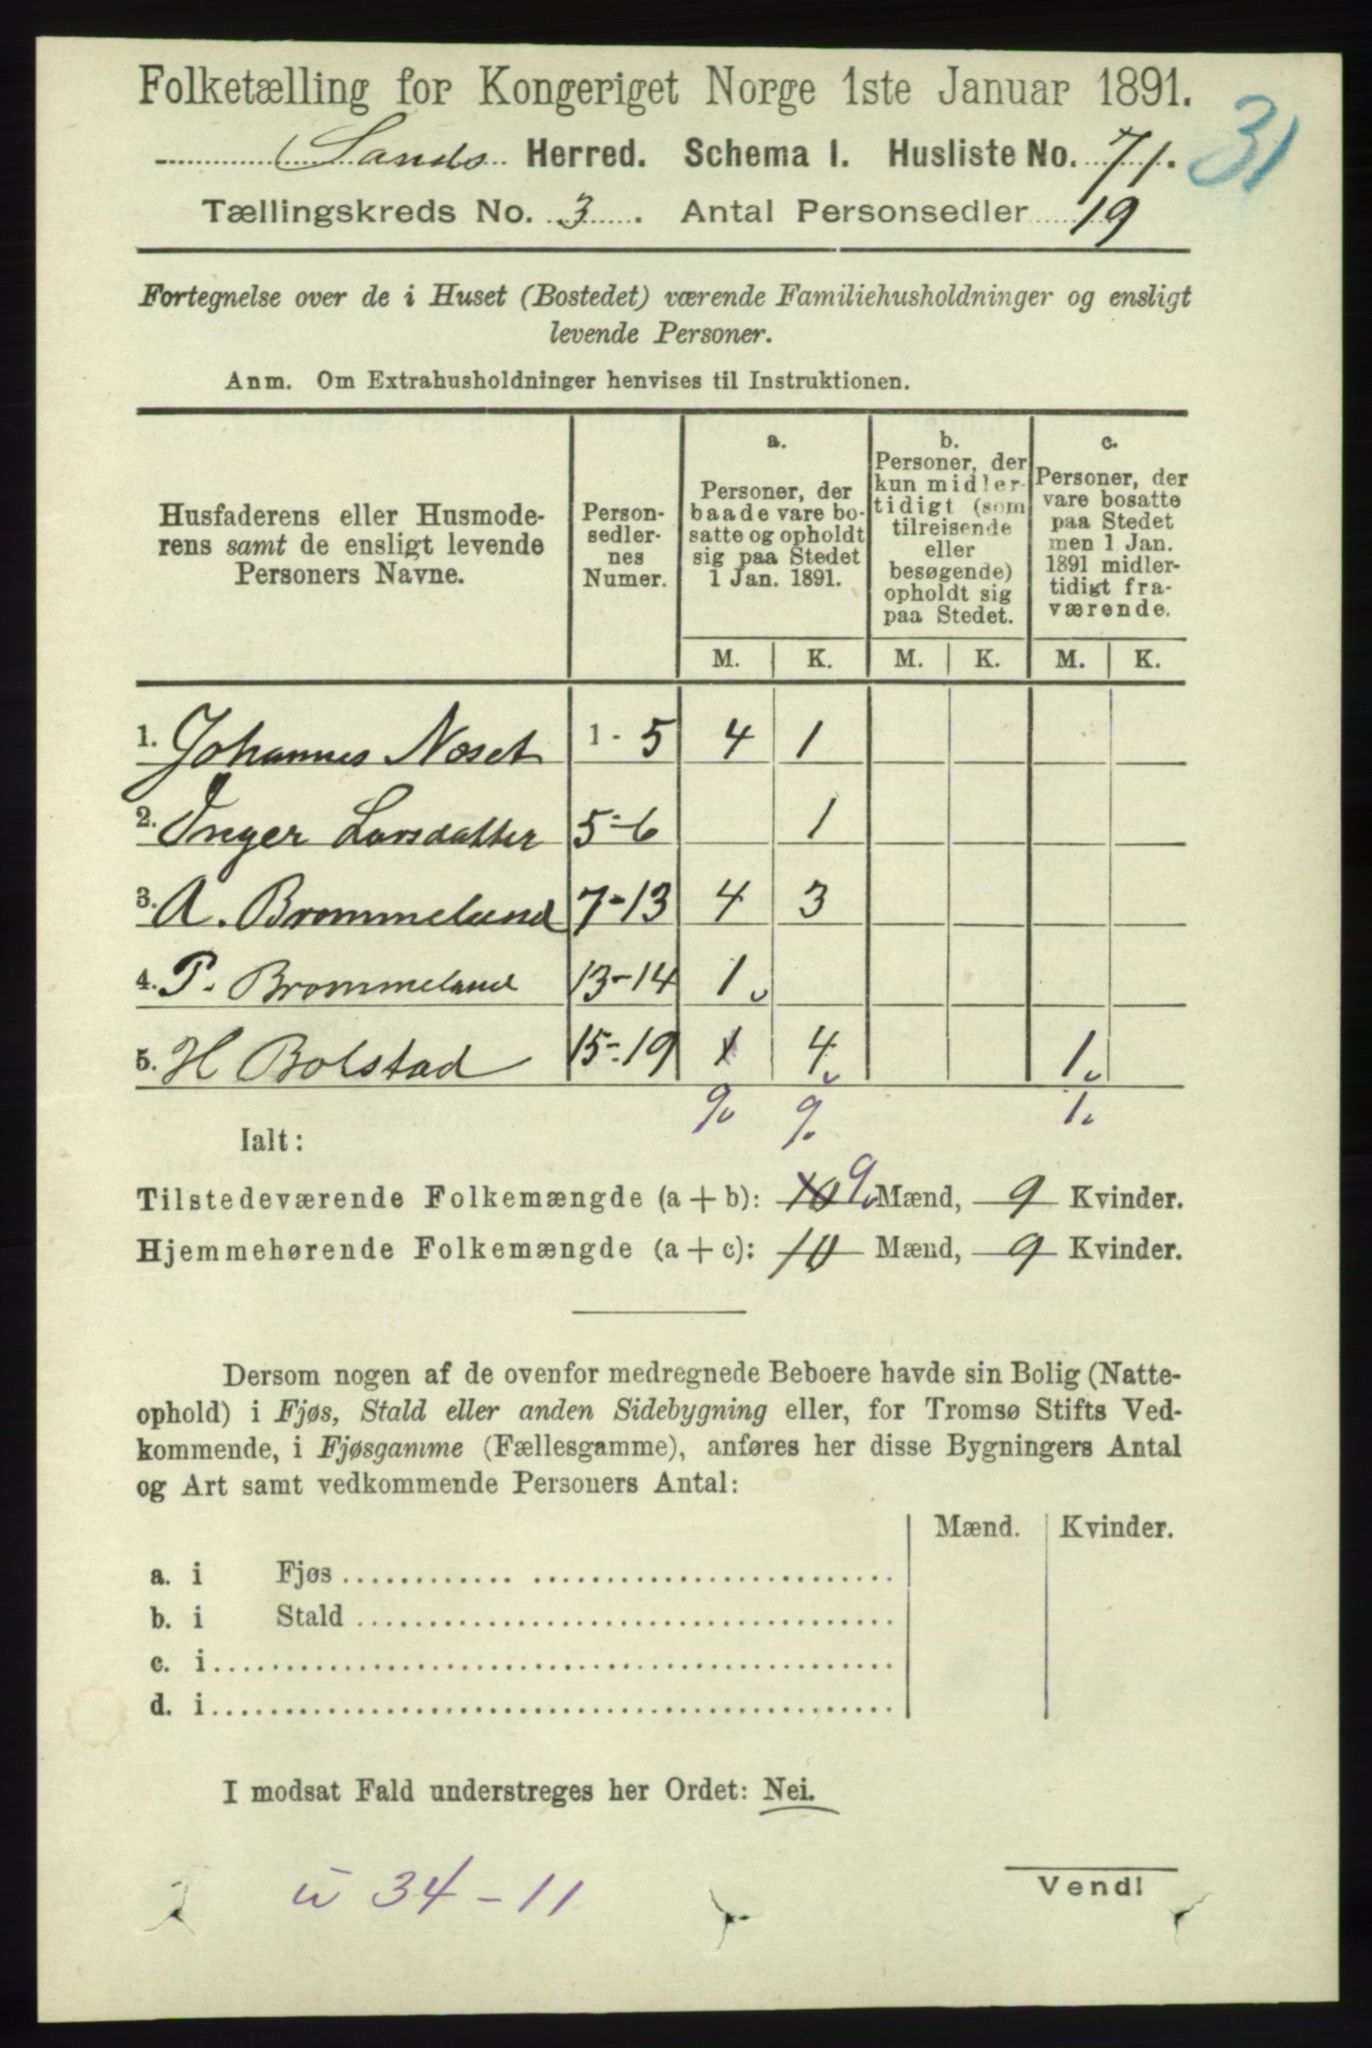 Folketælling for Kongeriget Norge 1ste Januar 1891.
31
Sands Herred. Schema I. Husliste No. 71.
Tællingskreds No. 3. Antal Personsedler 19
Fortegnelse over de i Huset (Bostedet) værende Familiehusholdninger og ensligt
levende Personer.
Anm. Om Extrahusholdninger henvises til Instruktionen.
Husfaderens eller Husmode-
rens samt de ensligt levende
Personers Navne.
Person-
sedler-
nes
Numer.
a.
Personer, der
baade vare bo-
satte og opholdt
sig paa Stedet
1 Jan. 1891.
b.
Personer, der
kun midler-
tidigt (som
tilreisende
eller
besøgende)
opholdt sig
paa Stedet.
c.
Personer, der
vare bosatte
paa Stedet
men 1 Jan.
1891 midler-
tidigt fra-
værende.
M. K. M. K. M. K.
1. Johannes Noset 1 - 5 4 1
2. Inger Larsdatter 5-6 1
3. A. Brommeland 7-13 4 3
4. P. Brommeland 13-14 1
5. H Bolstad 15-19 1 4 1
9 9 1
Ialt:
Tilstedeværende Folkemængde (a + b): 10 9 Mænd, 9 Kvinder.
Hjemmehørende Folkemængde (a + c): 10 Mænd, 9 Kvinder.
Dersom nogen af de ovenfor medregnede Beboere havde sin Bolig (Natte-
ophold) i Fjøs, Stald eller anden Sidebygning eller, for Tromsø Stifts Ved-
kommende, i Fjøsgamme (Fællesgamme), anføres her disse Bygningers Antal
og Art samt vedkommende Personers Antal:
Mænd. Kvinder.
a. i Fjøs
b. i Stald
c. i
d. i
I modsat Fald understreges her Ordet: Nei.
34-11
Vend!